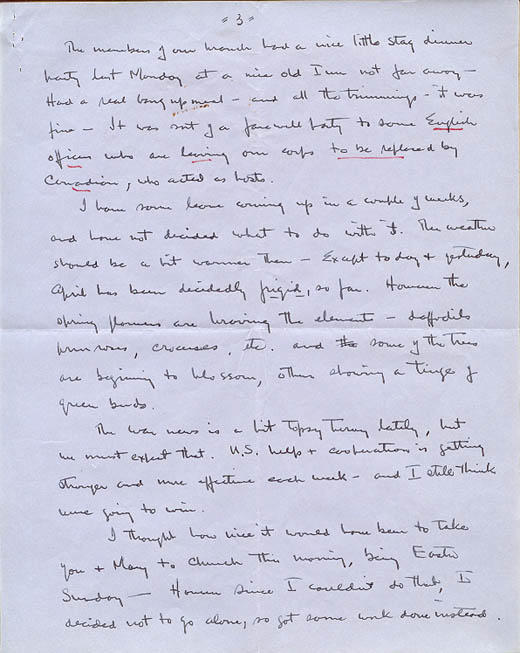 = 3 =
The members of our branch had a nice little stag dinner
party last Monday at a nice old Inn not far away -
Had a real bang up meal - and all the trimmings - it was
fine - It was sort of a farewell party to some English
officers who are leaving our corps to be replaced by
Canadian, who acted as hosts.
I have some leave coming up in a couple of weeks,
and have not decided what to do with it. The weather
should be a bit warmer then - Except today + yesterday,
April has been decidedly frigid, so far. However the
spring flowers are braving the elements - daffodils
primroses, crocuses, etc. and some of the trees
are begining to blossom, others showing a tinge of
green buds.
The war news is a bit topsy turvy lately, but
we must expect that. U.S. help + cooperation is getting
stronger and more effective each week - and I still think
were going to win.
I thought how nice it would have been to take
you + Mary to church this morning, being Easter
Sunday - However since I couldn't do that, I
decided not to go alone, so got some work done instead.